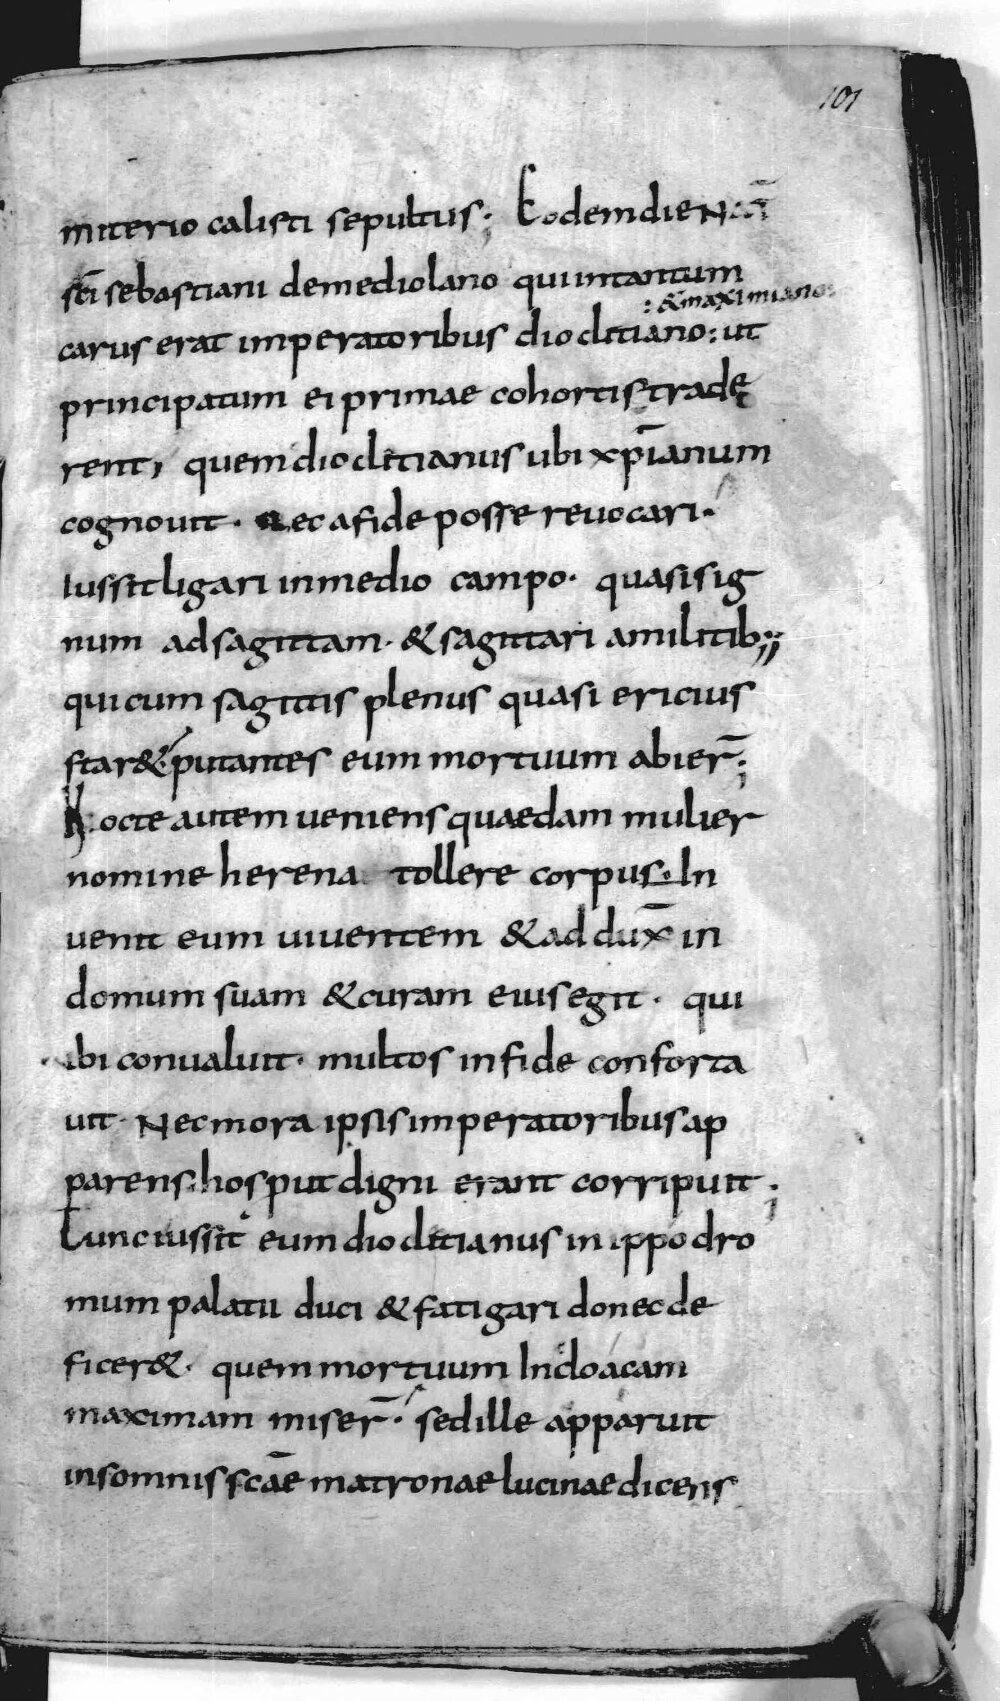 101
miterio calisti sepultus; Eodem die Nat̄
sc̄i sebastiani de mediolano qui intantum
:&maximiano:
carus erat imperatoribus dioclitiano: ut
principatum ei primae cohortis tradę
rent, quem dioclitianus ubi xp̄ianum
cognouit. nec a fide posse reuocari.
iussit ligari in medio campo. quasi sig
num ad sagittam. & sagittari a militib;;
qui cum sagittis plenus quasi ericius
star&. putantes eum mortuum abier̄;
Nocte autem ueniens quaedam mulier
nomine herena tollere corpus. In
uenit eum uiuentem & ad dux̄ in
domum suam & curam eius egit. qui
ibi conualuit. multos in fide conforta
uit. Nec mora ipsis imperatoribus ap
parens. hos put digni erant corripuit;
Tunc iussit eum dioclitianus in ippodro
mum palatii duci & fatigari donec de
ficer&. quem mortuum In cloacam
maximam miser̄. sed ille apparuit
in somnis sc̄ae matronae lucinae dicens